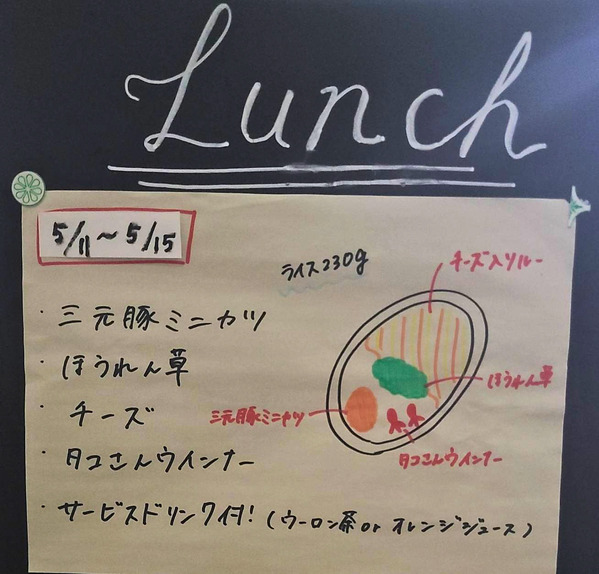 Lunch
5/11～5/15
ライス230g
チーズ入りルー
・三元豚ミニカツ
・ほうれん草
ほうれん草
・チーズ
三元豚ミニカツ
・タコさんウインナー
タコさんウインナー
・サービスドリンク付！(ウーロン茶or オレンジジュース)